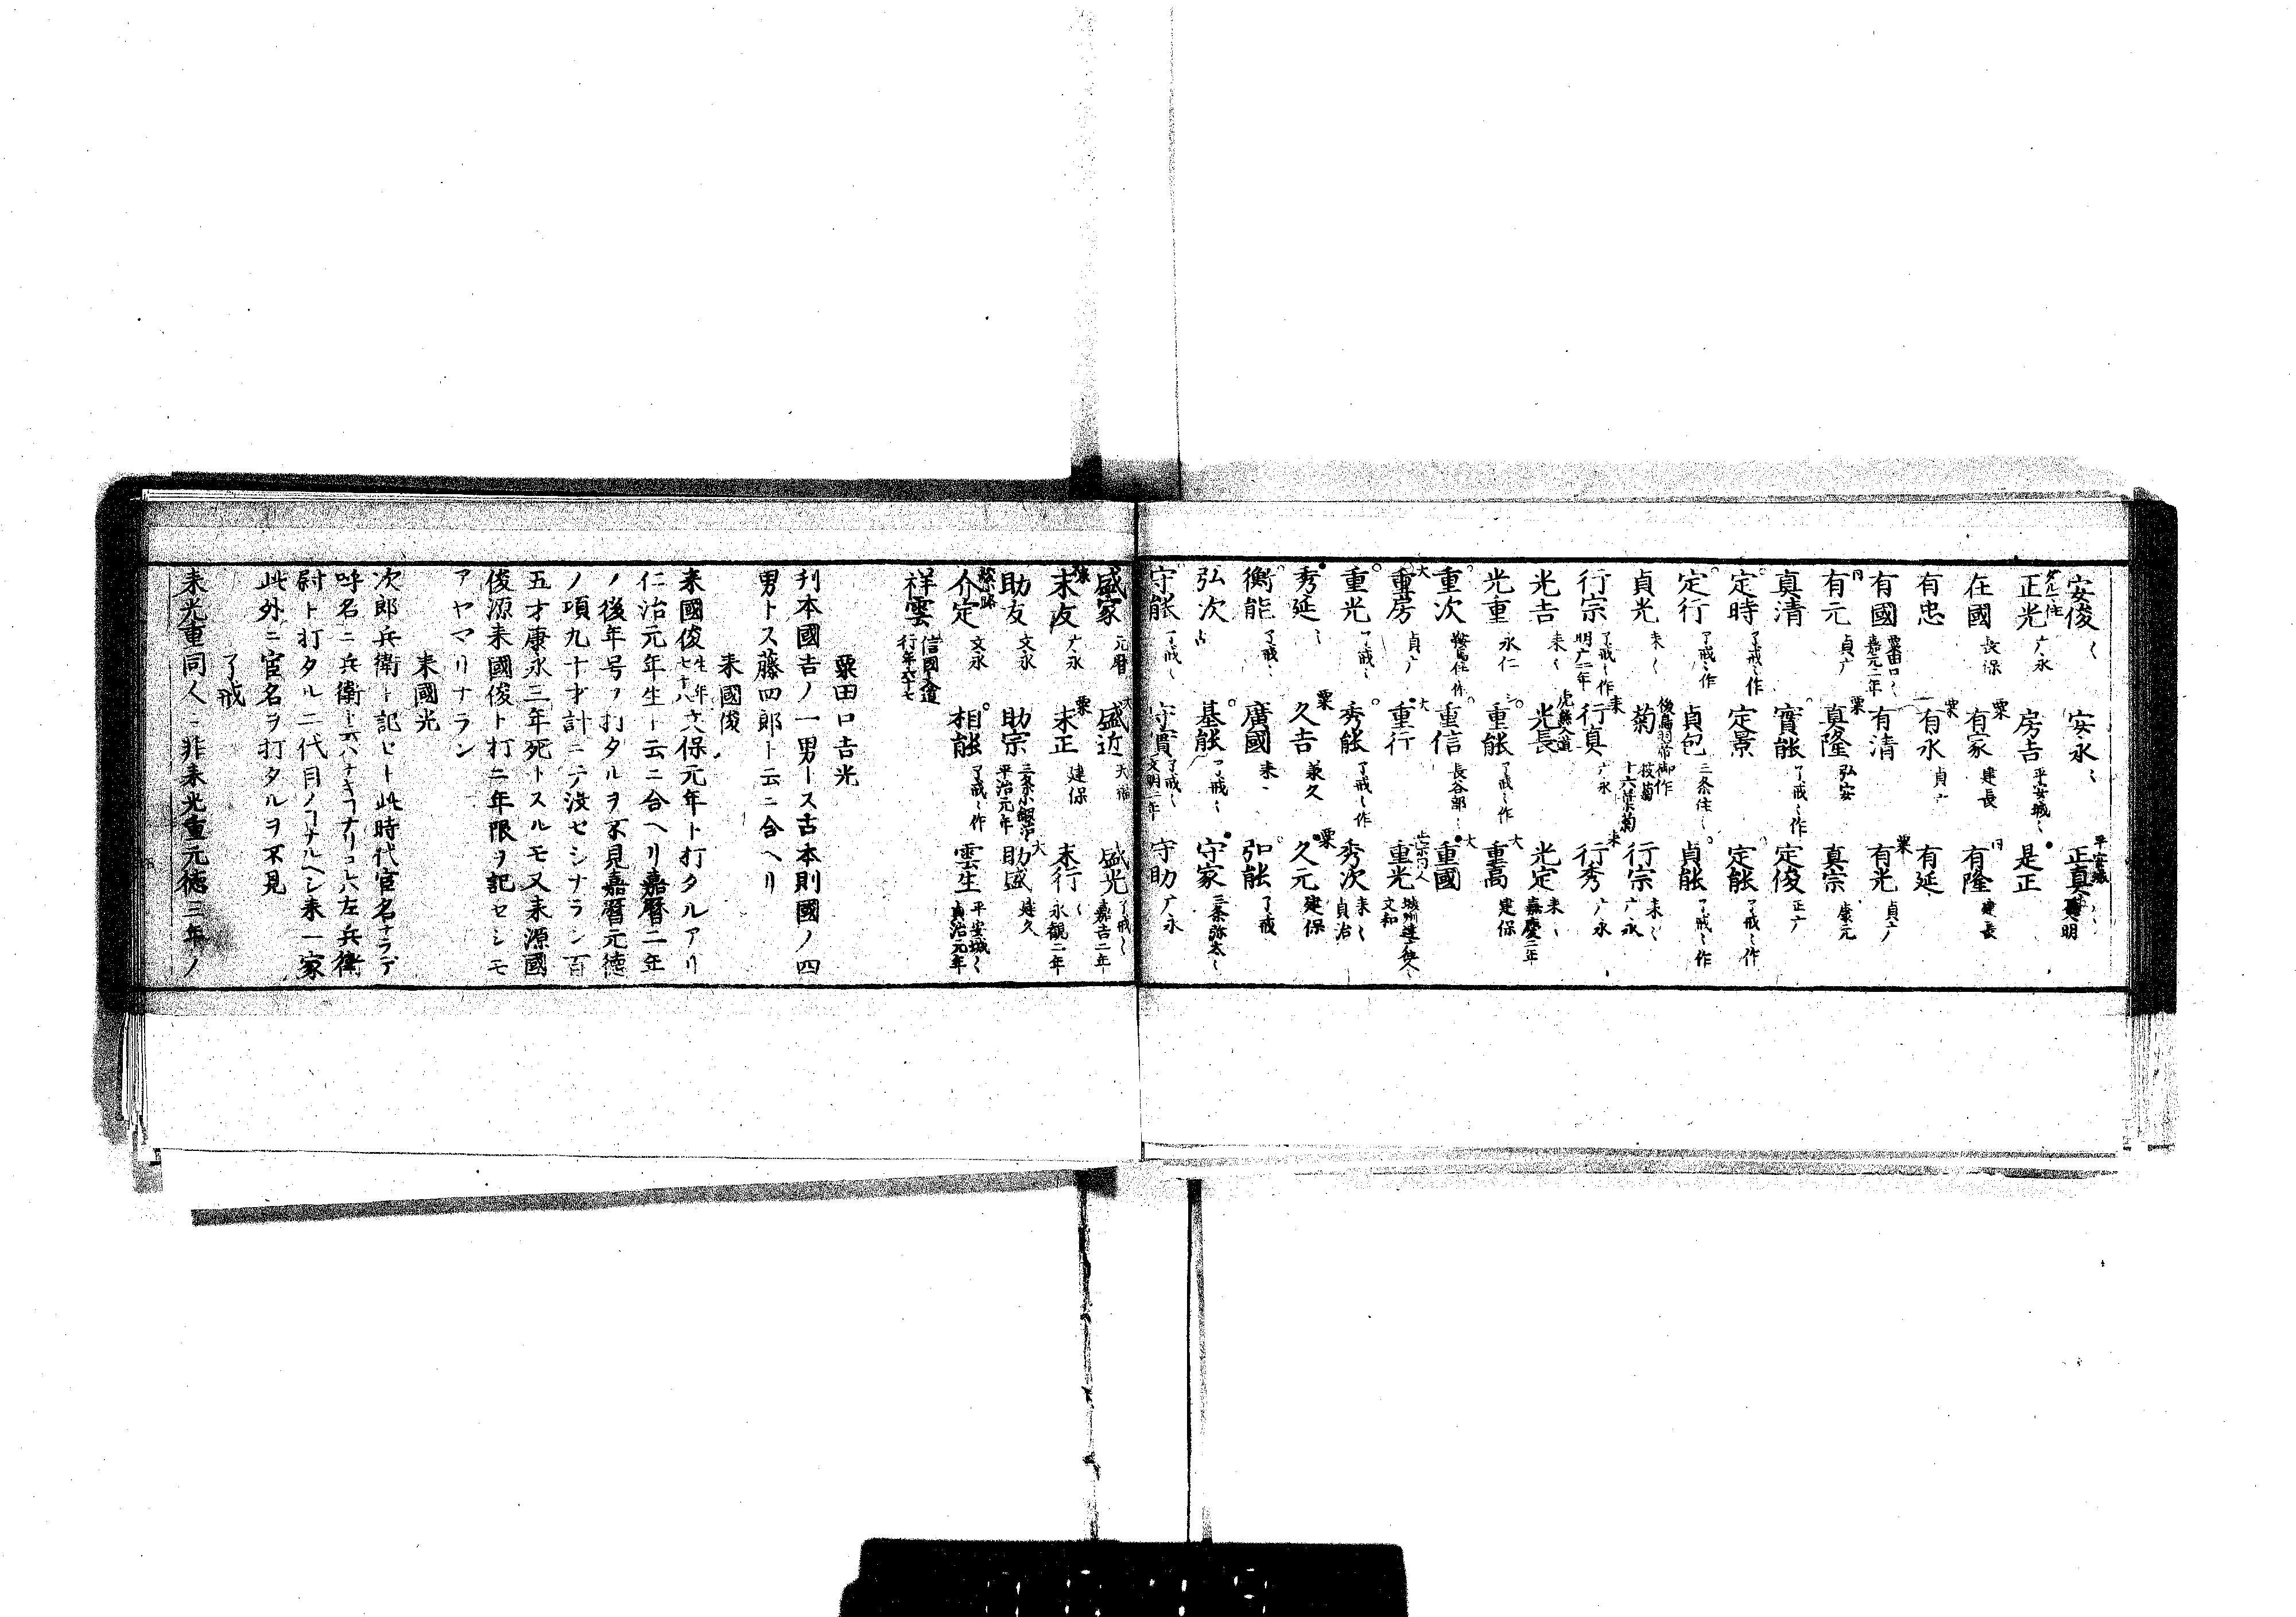 安俊〻 安永〻 平安城 正真
タルミ住 正光 广永 房吉 平安城〻 是正
在國 長保 粟 有家 建長 同 有隆 建長
有忠 粟 有永 貞广 有延
有國 粟田口〻 嘉元二年 有清 粟 有光 貞广
同 有元 貞广 粟 真隆 弘安 真宗 康元
真清 實能 了戒〻作 定俊 正广
定時 了戒〻作 定景 定能 了戒〻作
定行 了戒〻作 貞包 三条住〻 貞能 了戒〻作
貞光 来〻 菊 後鳥羽帝御作 枝菊 十六葉菊 行宗 来〻 广永
行宗 了戒〻作 明广二年 来 行真 广永 来 行秀 广永
光吉 来〻 光長 光定 来〻 嘉慶二年
光重 永仁 重能 了戒〻作 大 重高 建保
重次 鞍馬住 重信 長谷部〻 大 重國
大 重房 貞广 大 重行 重光 文和
重光 了戒〻 秀能 了戒〻作 秀次 来〻 貞治
秀延〻 粟 久吉 兼久 粟 久元 建保
衡能 了戒〻 廣國 来〻 弘能 了戒
弘次 基能 了戒〻 守家 三条弥太〻
守能 了戒〻 守實 了戒〻 文明二年 守助 广永
盛家 元暦 大 盛近 盛光 了戒〻 嘉吉二年
末友 广永 粟 末正 建保 末行〻 永観二年
助友 文永 助宗 三条小鍛冶 平治元年 大 助盛 建久
綾小路 介定 文永 相能 了戒〻作 雲生 平安城〻 貞治元年
祥雲 信國入道 行年六十七
粟田口吉光
利本國吉ノ一男トス古本則國ノ四
男トス藤四郎ト云ニ合ヘリ
来國俊
来國俊 生年七十八 正保元年ト打タルアリ
仁治元年生ト云ニ合ヘリ嘉暦二年
ノ後年号ヲ打タルヲ不見嘉暦元徳
ノ項九十才計ニテ没セシナラン百
五才康永三年死トスルモ又来源國
俊源来國俊ト打ニ年限ヲ記セシモ
アヤマリナラン
来國光
次郎兵衛ト記セト此時代官名ナラデ
呼名ニ兵衛ト云ハナキヿナリコレハ左兵衛
尉ト打タル二代目ノヿナルヘシ来一家
此外ニ官名ヲ打タルヲ不見
了戒
来光重同人ニ非来光重元徳三年ノ